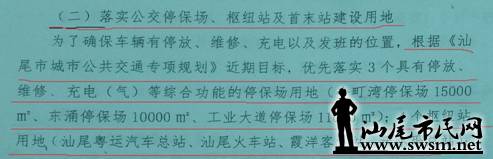 （二）落实公交停保场、枢纽站及首末站建设用地
为了确保车辆有停放、维修、充电以及发班的位置，根据《汕
尾市城市公共交通专项规划》近期目标，优先落实3个具有停放、
维修、充电（气）等综合功能的停保场用地（ 町湾停保场15000
㎡、东涌停保场10000㎡、工业大道停保场1 ㎡）； 个枢纽站
用地（汕尾粤运汽车总站、汕尾火车站、霞洋客
汕尾市民网
www.swsm.net